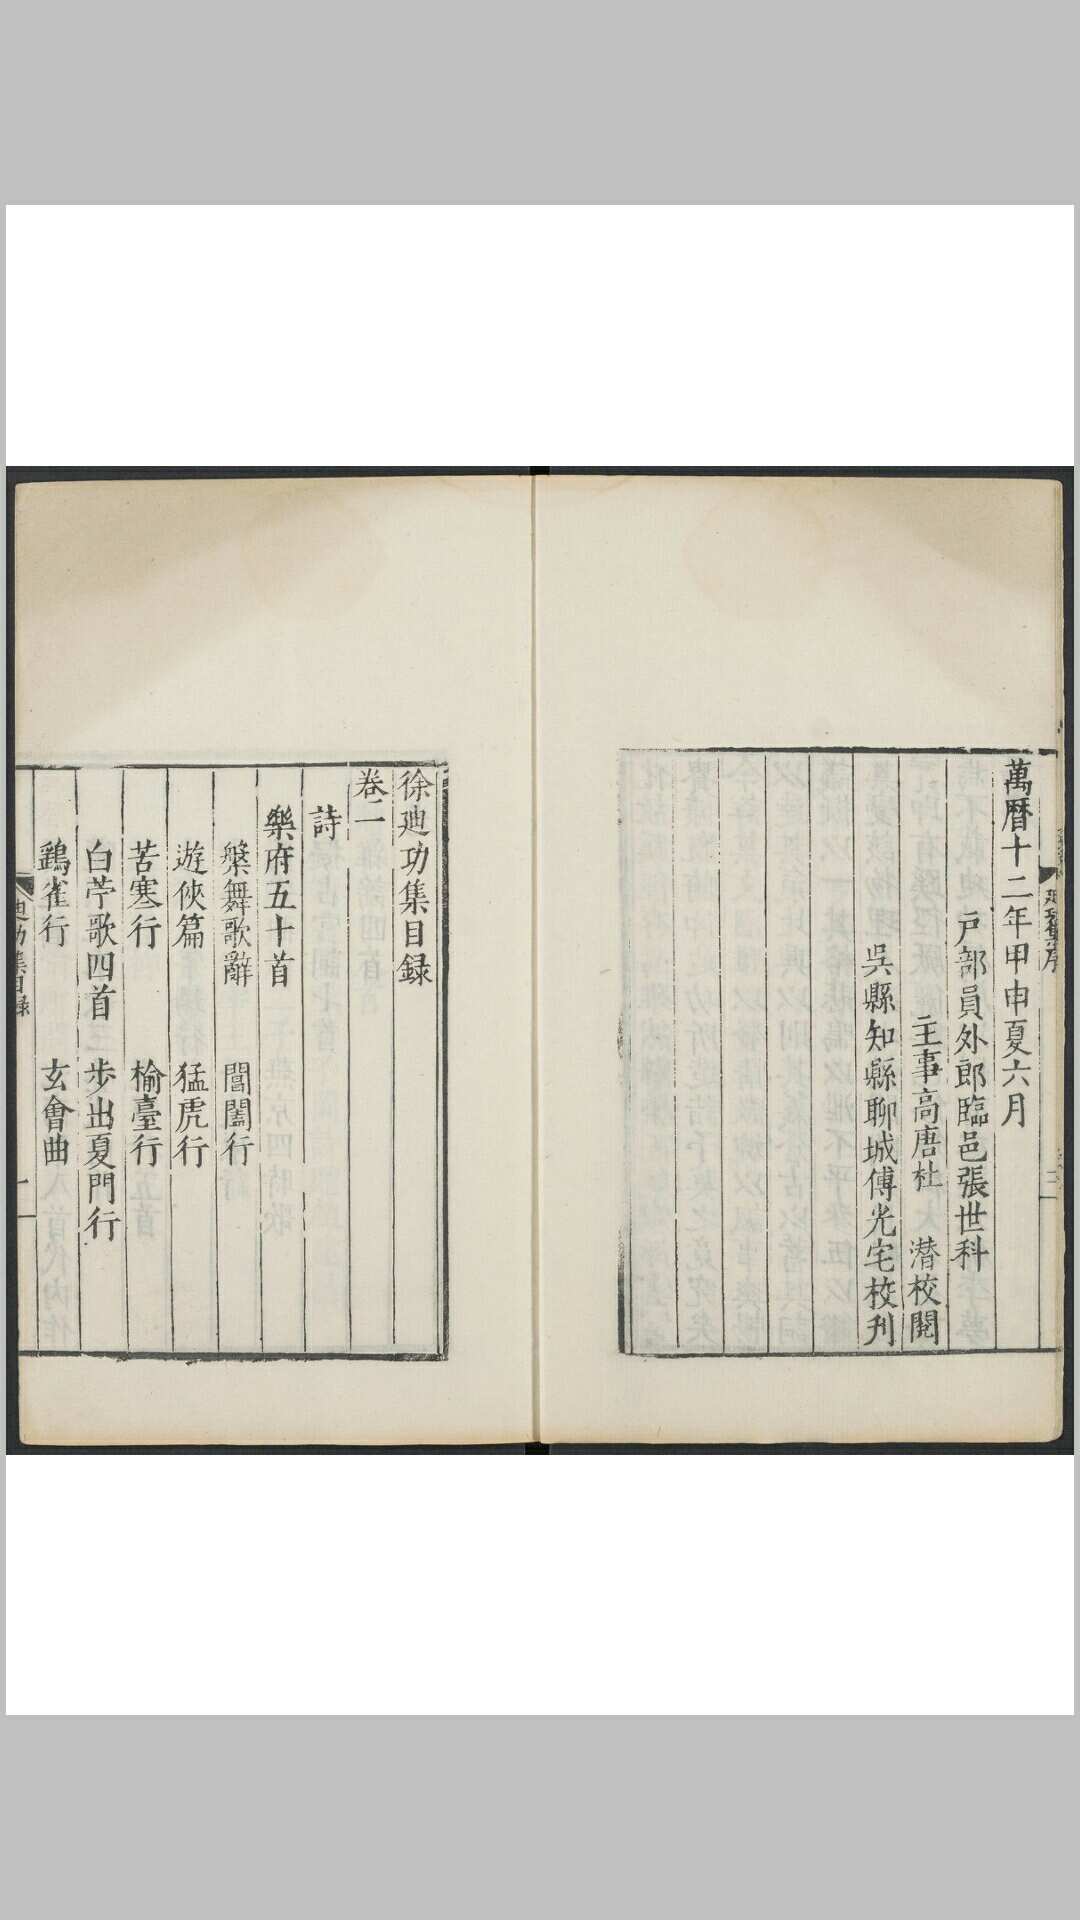 萬曆十二年甲申夏六月
戸部員外郎臨邑張世科
主事高唐杜 潛校閱
吳縣知縣聊城傅光宅校刋
徐廸功集目録
卷一
詩
樂府五十首
槃舞歌辭 閶闔行
遊俠篇 猛虎行
苦寒行 榆臺行
白苧歌四首 步出夏門行
鷄雀行 玄會曲
廸功集目録 一